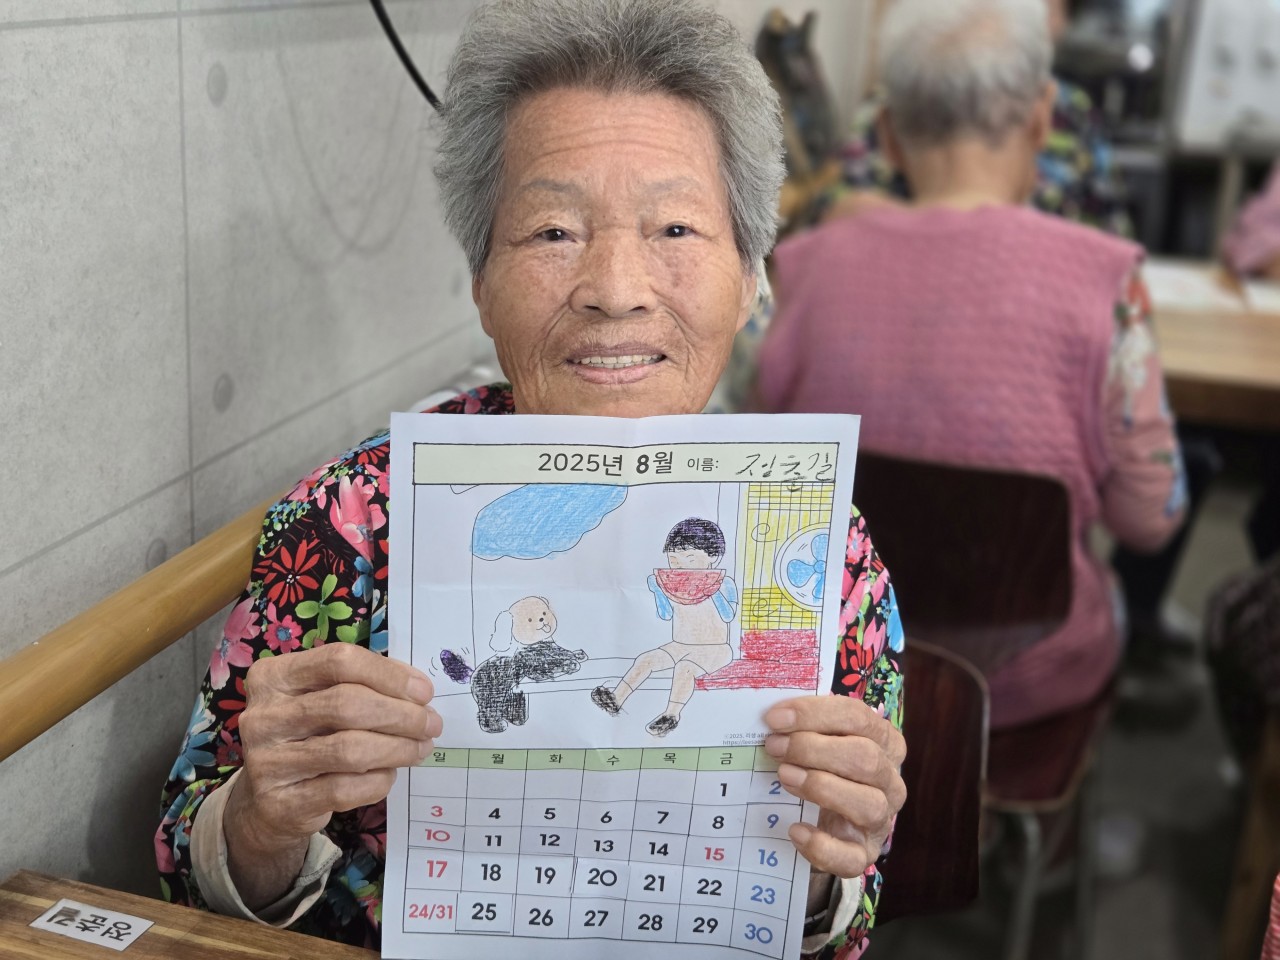 2025년 8월 이름: 정춘길
©2025.
https://
일 월 화 수 목 금
1 2
3 4 5 6 7 8 9
10 11 12 13 14 15 16
17 18 19 20 21 22 23
24/31 25 26 27 28 29 30
정춘길